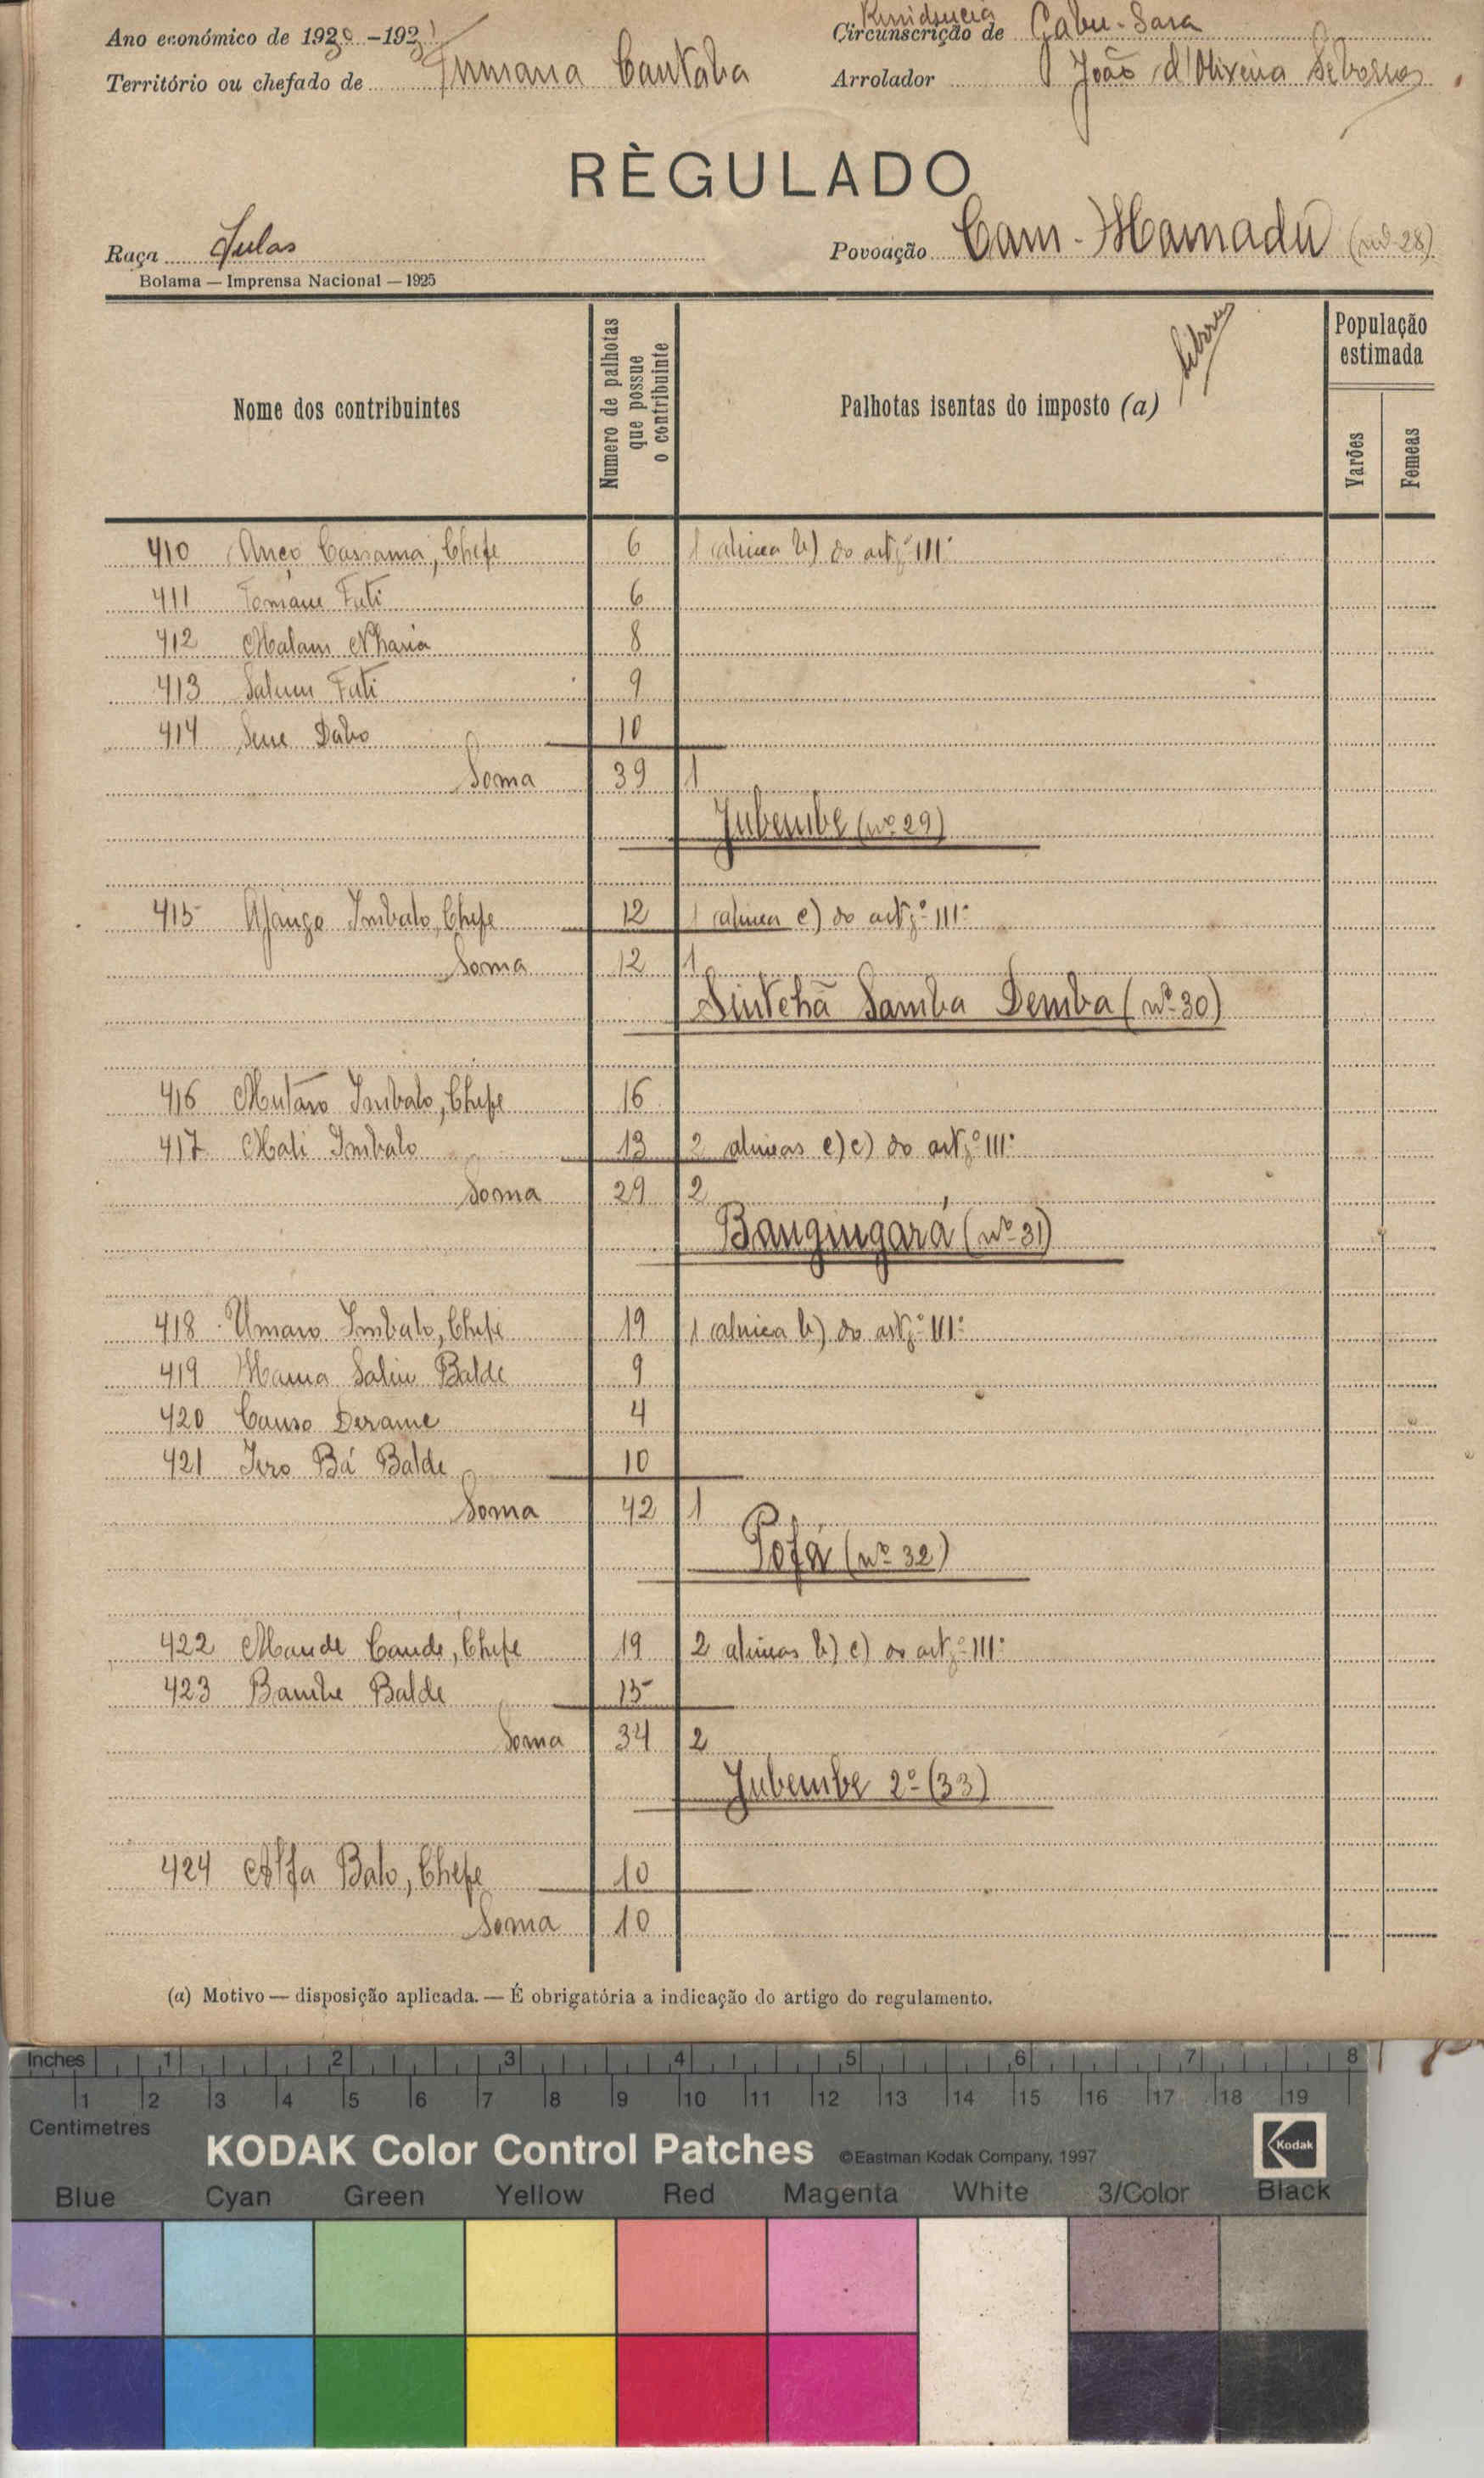 Ano económico de 1930-1931
Residencia
Circunscrição de Gabu-Sara
Território ou chefado de Tumana Cantaba
Arrolador João d'Oliveira
RÈGULADO
Raça Fulas
Povoação Cam-Hamadu (nº 28)
Bolama — Imprensa Nacional — 1925
Nome dos contribuintes
Numero de palhotas que possue o contribuinte
Palhotas isentas do imposto (a)
População estimada
Varões
Femeas
410 Cassama, Chefe 6 1 (alinea b) do artigº III º
411 Tomane Fati 6
412 Malam Nhana 8
413 Salum Fati 9
414 Sene Dabo 10
Soma 39 1
Jubembe (nº 29)
415 Ajango Imbalo, Chefe 12 1 (alinea c) do artgº III º
Soma 12 1
Sintchã Samba Demba (nº 30)
416 Mutaro Imbalo, Chefe 16
417 Mali Imbalo 13 2 alineas e) c) do artgº III º
Soma 29 2
Bangingará (nº 31)
418 Umaro Imbalo, Chefe 19 1 (alinea b) do artgº III º
419 Hama Saliu Balde 9
420 Causo Derame 4
421 Iero Bá Balde 10
Soma 42 1
Pofá (nº 32)
422 Mande Cande, Chefe 19 2 alineas b) c) do artgº III º
423 Bambe Balde 15
Soma 34 2
Jubembe 2º (33)
424 Alfa Balo, Chefe 10
Soma 10
(a) Motivo — disposição aplicada. — É obrigatória a indicação do artigo do regulamento.
Inches 1 2 3 4 5 6 7 8
1 2 3 4 5 6 7 8 9 10 11 12 13 14 15 16 17 18 19
Centimetres
KODAK Color Control Patches ©Eastman Kodak Company, 1997 Kodak
Blue Cyan Green Yellow Red Magenta White 3/Color Black